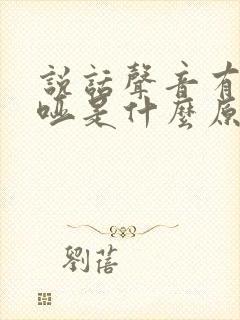 說話聲音有
啞是什麼原
劉蓓